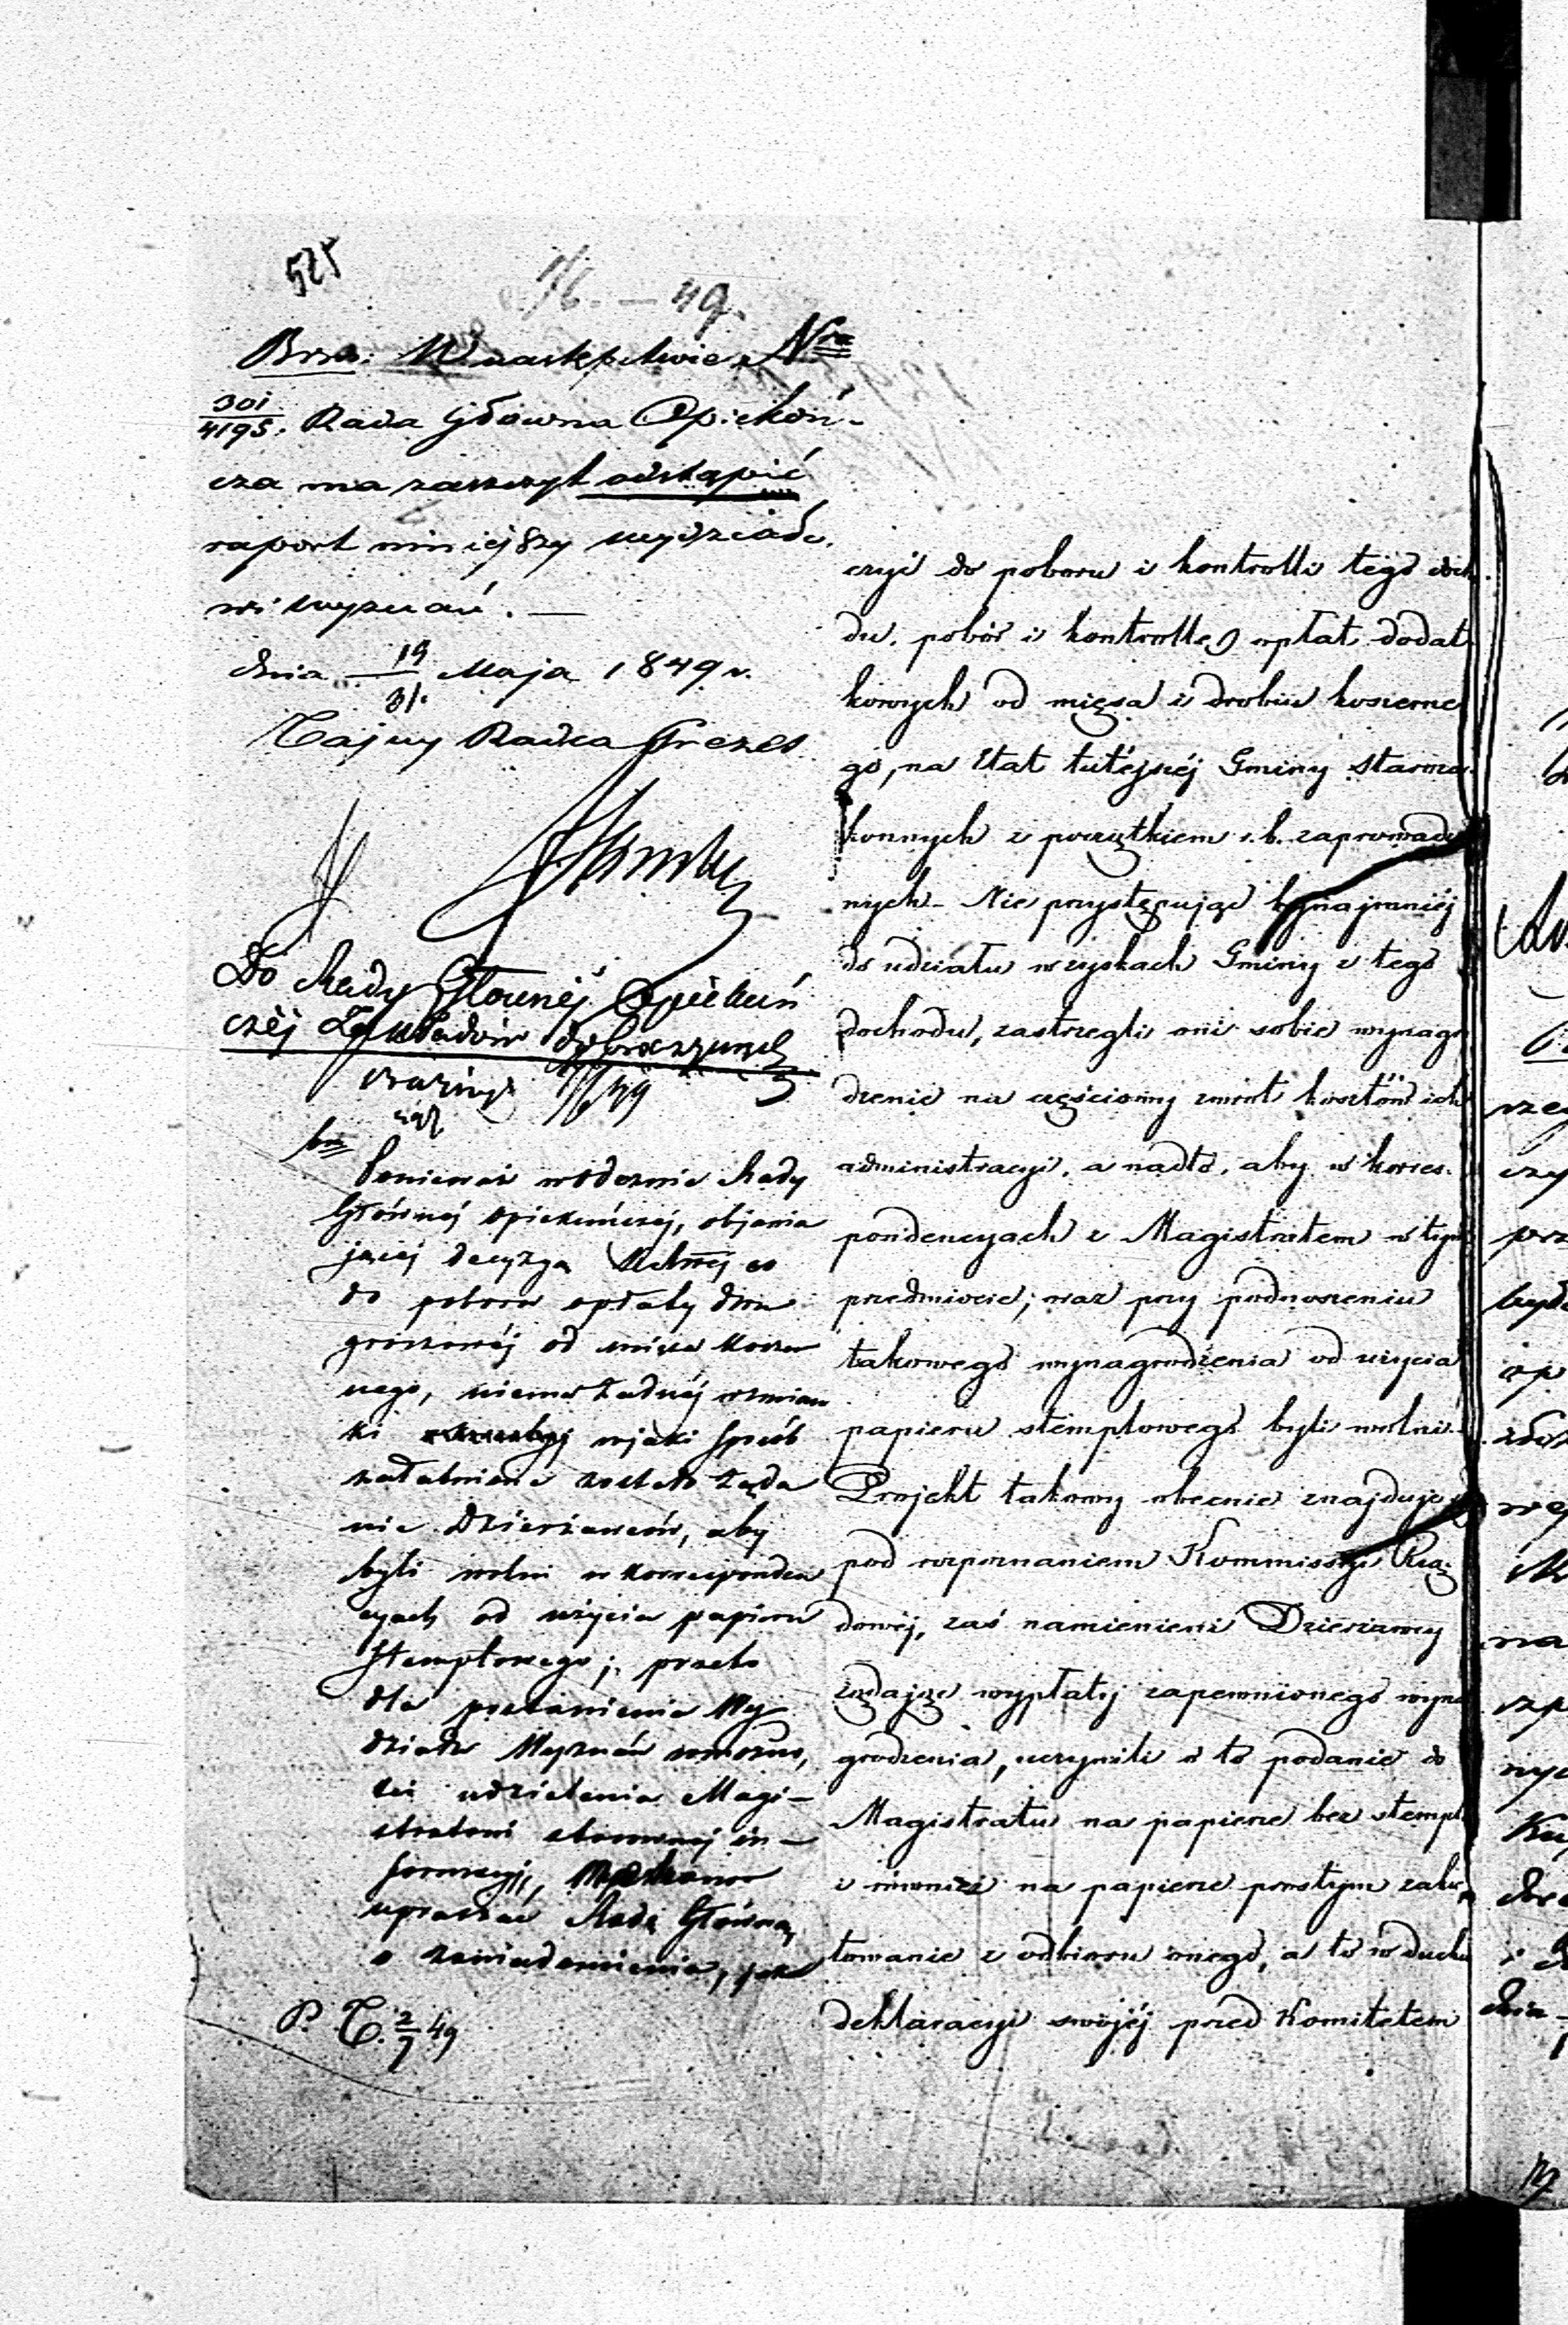 525
1/6. — 49.
Brm: W następstwie Nra
301/4195. Rada Główna Opiekuń-
cza ma zaszczyt odstąpić
raport niniejszy wydziało-
wi wyznań. —
dnia 19/31. Maja 1849 r.
Tajny Radca Prezes
Do Rady Głównéj Opiekuń
czéj Zakładów dobroczynnych
1/6 49
Ponieważ w odezwie Rady
Głównej opiekuńczej, objawia
jącej decyzyą
do poboru opłaty dwu
groszowéj od mięsa kosze
nego, niema żadnéj wzmian
ki w jaki sposób
załatwione zostało żąda
nie Dzierżawców, aby
byli wolni w korresponden
cyach od użycia papieru
stemplowego; przeto
dla postawienia Wy
działu Wyznań w możno,
ści udzielenia Magi-
stratowi stosownej in-
formacyi,
upraszać Radę Główną
o zawiadomienie, jak
P. T. 2/7 49
czyć do poboru i kontrolli tego docho
du, pobór i kontrollę opłat dodat
kowych od mięsa i drobiu koszerne
go, na Etat tutejszéj Gminy staroza
konnych z początkiem r. b. zaprowadzo
nych – Nie przystępując bynajmniéj
do udziału w zyskach Gminy z tego
dochodu, zastrzegli oni sobie wynagro
dzenie na częściowy zwrot kosztów ich
administracyi, a nadto, aby w korres-
pondencyach z Magistratem w tym
przedmiocie; oraz przy podnoszeniu
takowego wynagrodzenia od użycia
papieru stemplowego byli wolni.
Projekt takowy obecnie znajduje się
pod rozpoznaniem Kommissyi Rzą-
dowéj, zaś namienieni Dzierżawcy
żądając wypłaty zapewnionego wyna
grodzenia, uczynili o to podanie do
Magistratu na papierze bez stempla
i również na papierze prostym zakwi
towanie z odbioru onego, a to w duchu
deklaracyi swojéj przed Komitetem